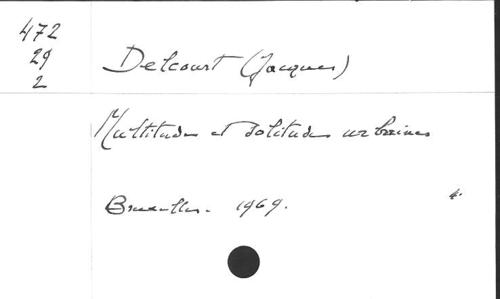 472
29
2
Delcourt (Jacques)
Multitudes et solitudes urbaines
Bruxelles. 1969.
4.